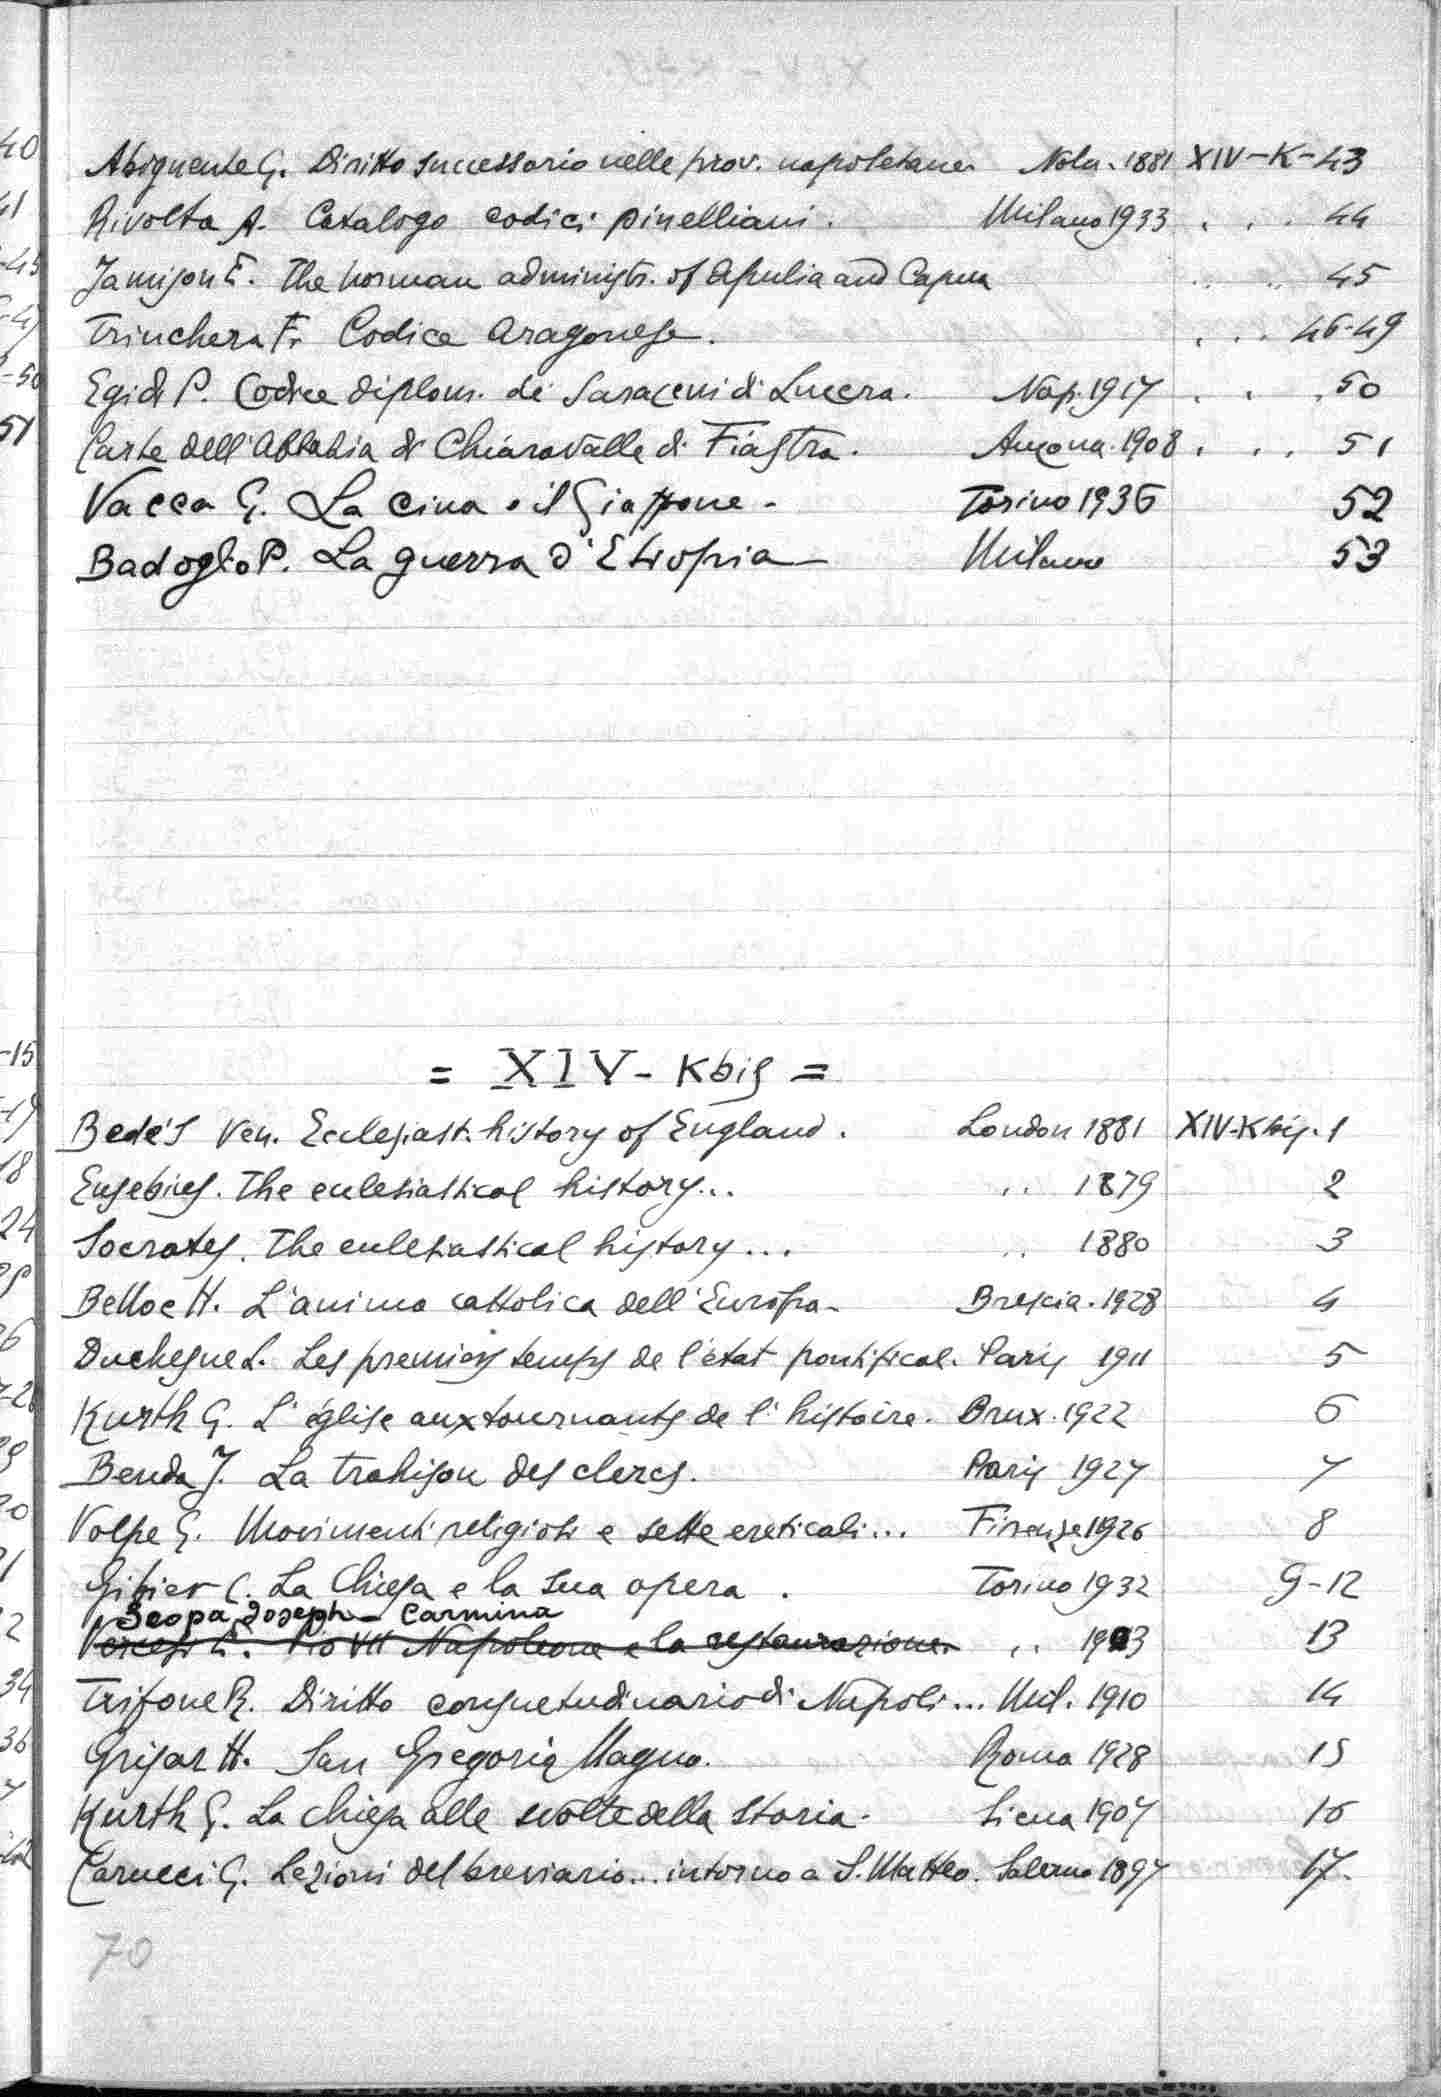 Abignente G. Diritto successorio nelle prov. napoletane Nola. 1881 XIV-K-43
Rivolta A. Catalogo codici pinelliani. Milano 1933 . . . 44
Jamison E. The norman administr. of Apulia and Capua .. .. 45
Trinchera F. Codice Aragonese. . . . 46-49
Egidi P. Codice diplom. dei Saraceni di Lucera. Nap. 1917 . . . 50
Carte dell'Abbadia di Chiaravalle di Fiastra. Ancona. 1908 . . . 51
Vacca G. La cina e il Giappone - Torino 1936 52
Badoglio P. La guerra d'Etiopia - Milano 53
= XIV - Kbis =
Bede's Ven. Ecclesiast. history of England. London 1881 XIV-Kbis. 1
Eusebius. The ecclesiastical history... .. 1879 2
Socrates. The ecclesiastical history... .. 1880 3
Belloc H. L'anima cattolica dell'Europa - Brescia. 1928 4
Duchesne L. Les premiers temps de l'état pontifical. Paris 1911 5
Kurth G. L'église aux tournants de l'histoire. Brux. 1922 6
Benda J. La trahison des clercs. Paris 1927 7
Volpe G. Movimenti religiosi e sette ereticali... Firenze 1926 8
Gibier C. La Chiesa e la sua opera. Torino 1932 9-12
Scopa Joseph - Carmina
Vercesi E. Pio VII Napoleone e la restaurazione .. 1933 13
Trifone R. Diritto consuetudinario di Napoli... Mil. 1910 14
Grisar H. San Gregorio Magno. Roma 1928 15
Kurth G. La chiesa alle svolte della storia. Siena 1907 16
Carucci G. Lezioni del breviario... intorno a S. Matteo. Salerno 1897 17.
70